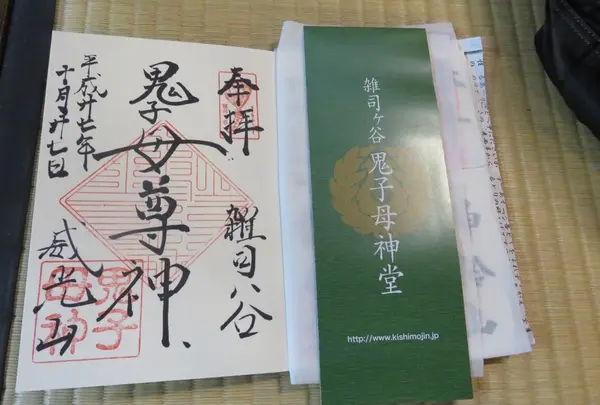 奉拝
雑司ヶ谷
鬼子母尊神
平成廿七年
十月廿七日
威光山
鬼子
母神
雑司ヶ谷 鬼子母神堂
http://www.kishimojin.jp